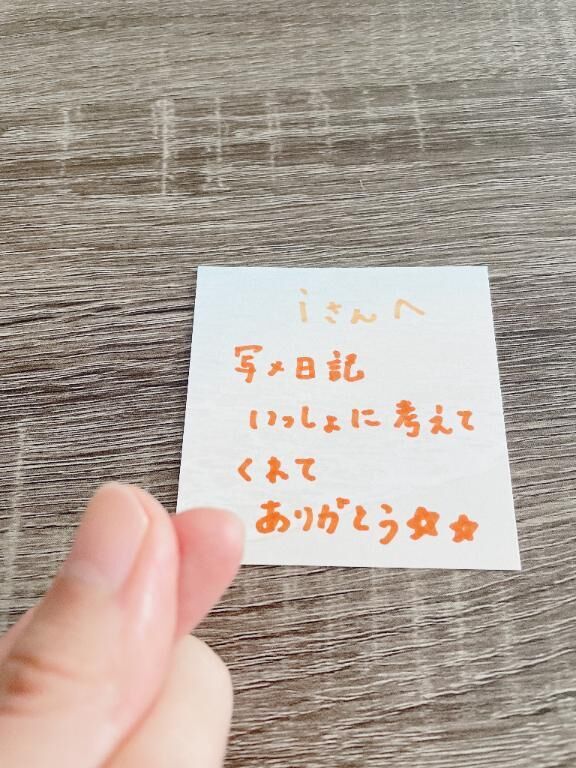 iさんへ
写メ日記
いっしょに考えて
くれて
ありがとう☆☆